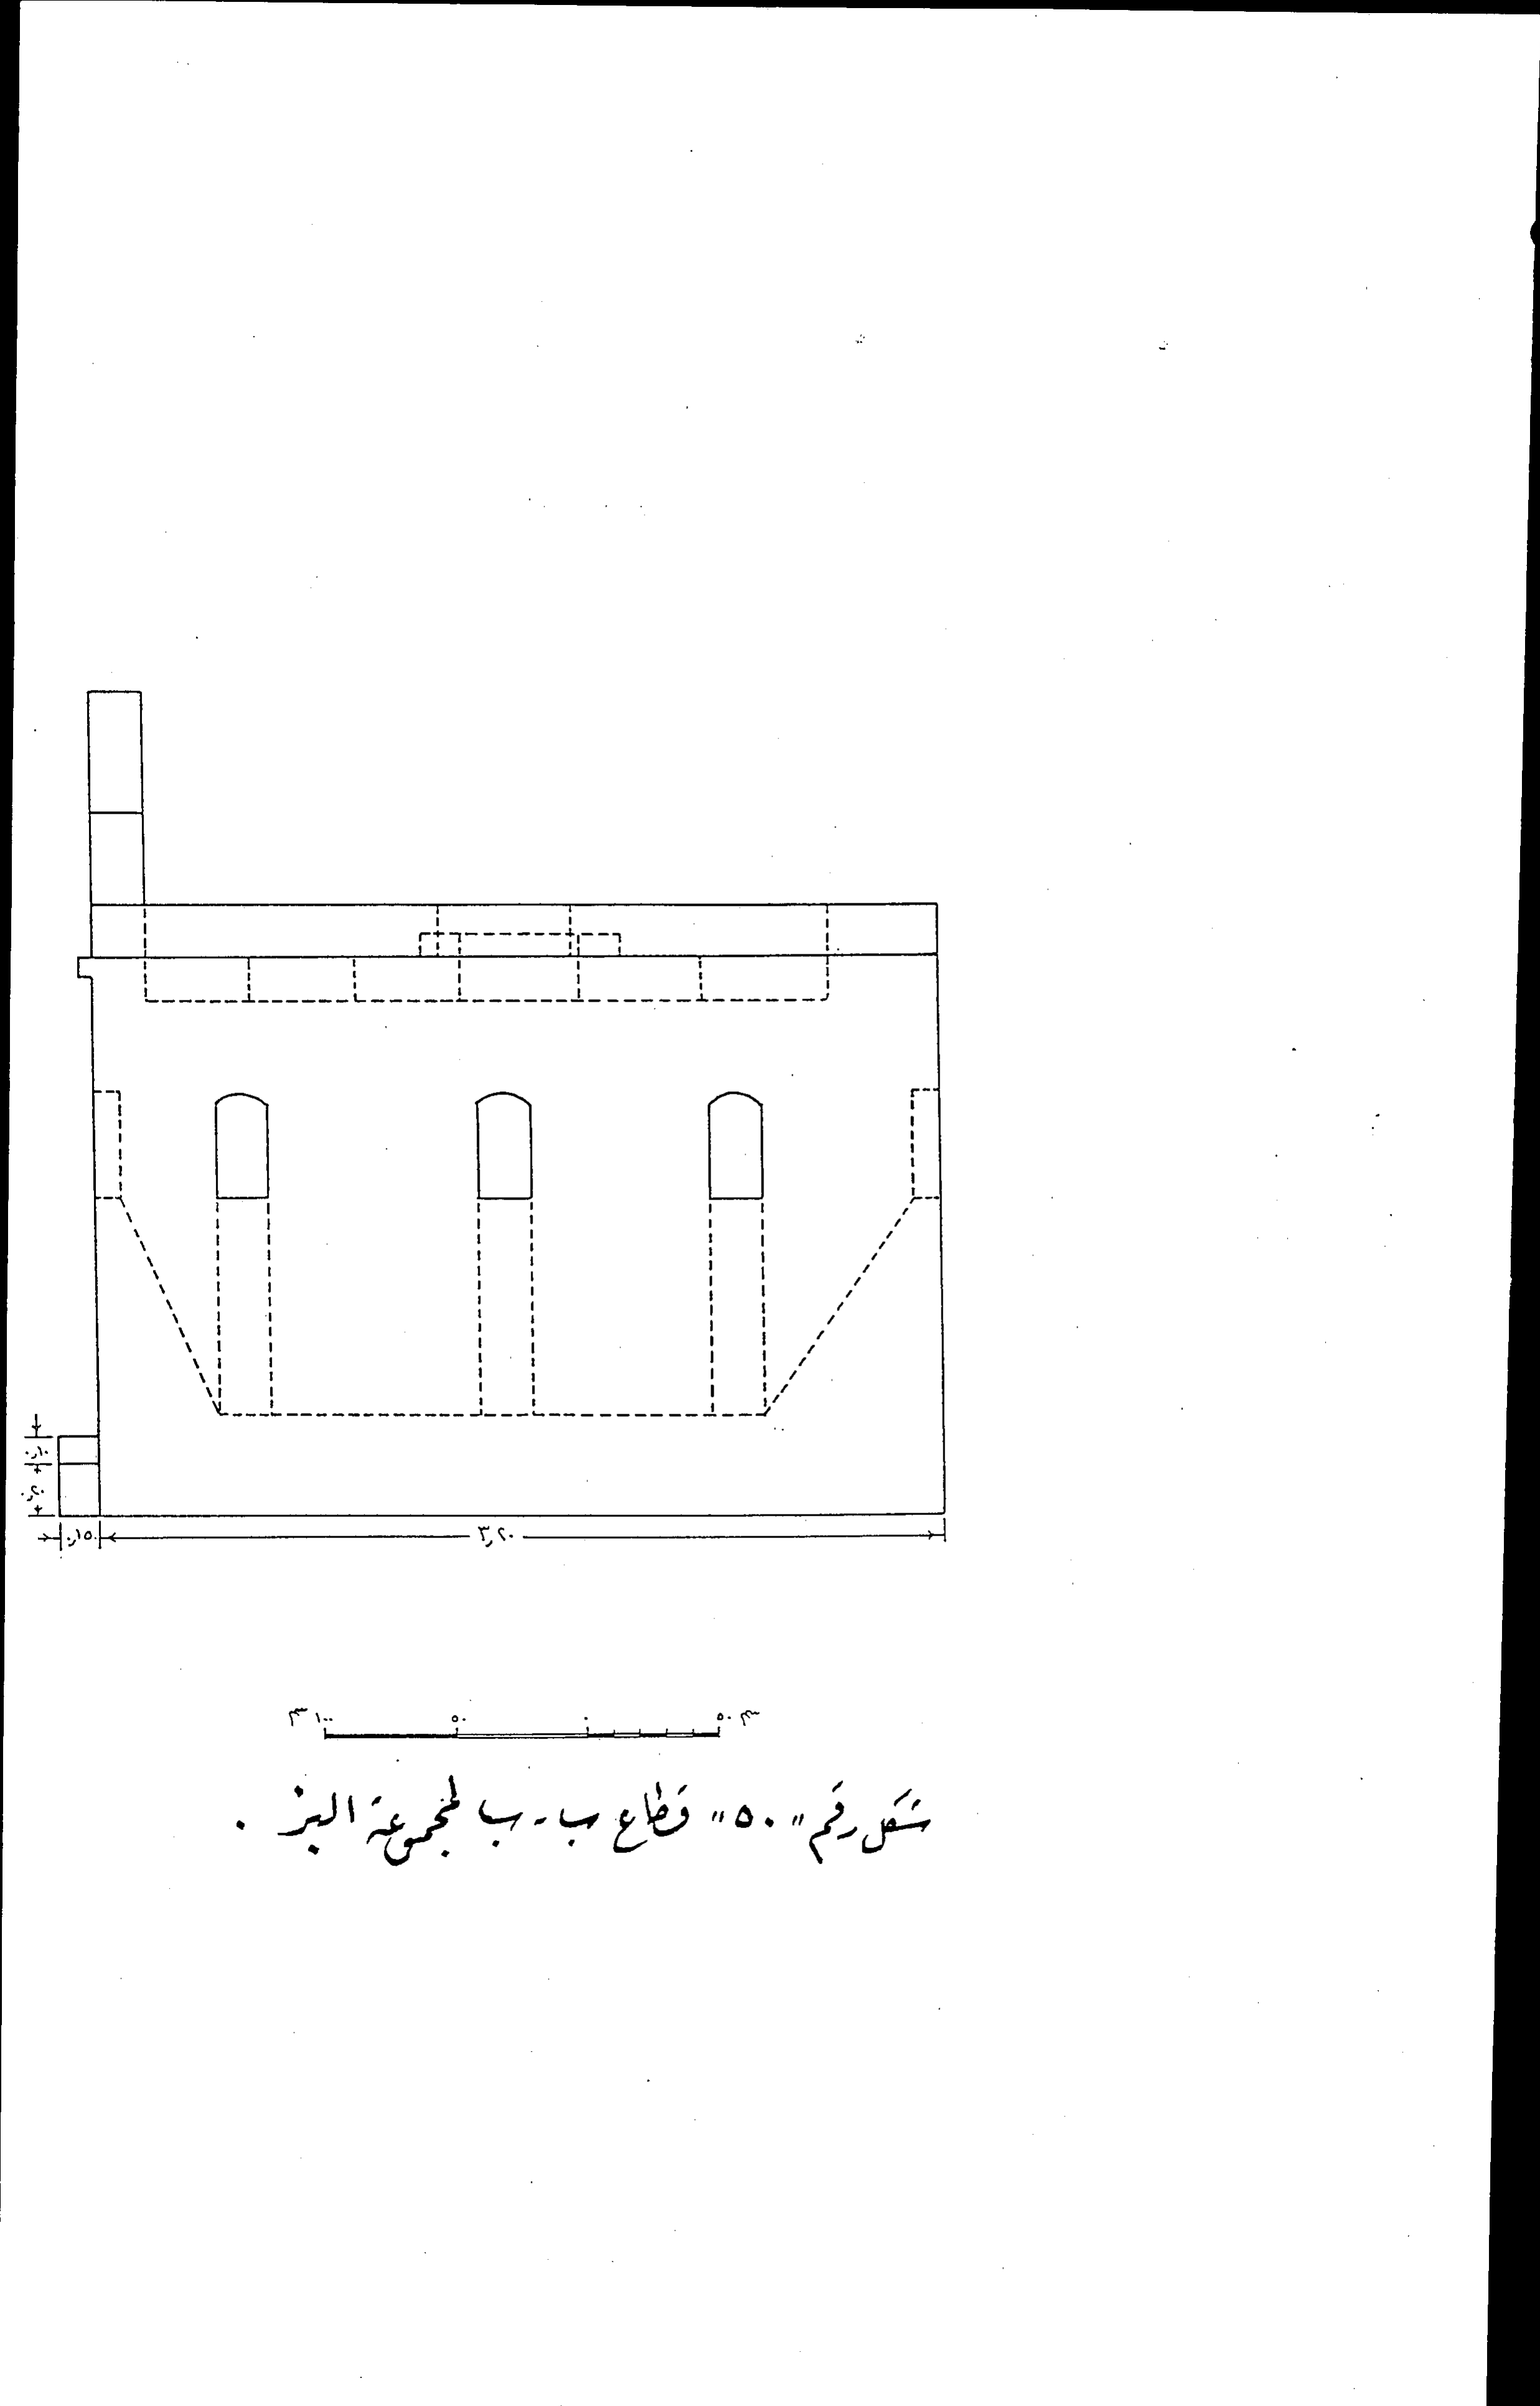 ٠٫١٠
٠٫٢٠
٠٫١٥
٣٫٢٠
٣ ١٠٠ ٥٠ ٠ ٥٠ سم
شكل رقم "٥٠" قطاع ب - ب لمجموعة البز .